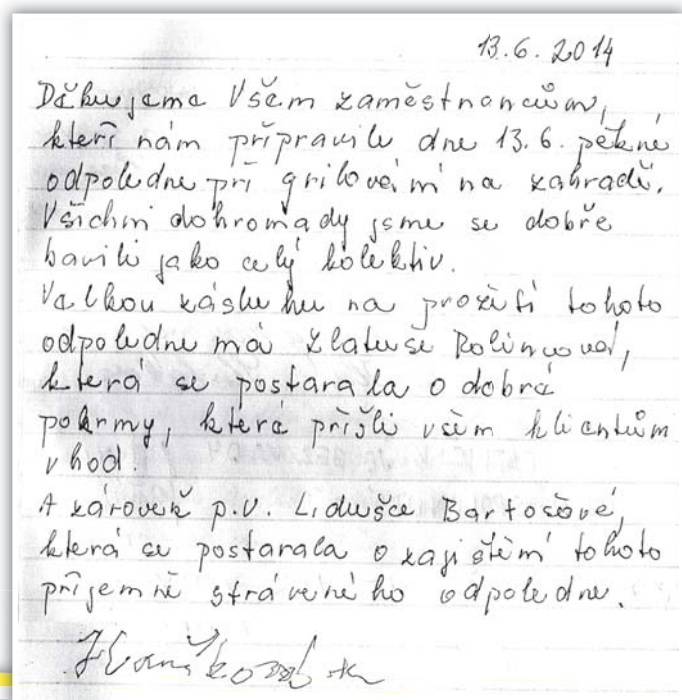 13.6.2014
Děkujeme Všem zaměstnancům,
kteří nám připravili dne 13.6. pěkné
odpoledne při grilování na zahradě.
Všichni dohromady jsme se dobře
bavili jako celý kolektiv.
Velkou zásluhu na prožití tohoto
odpoledne má Zlatuše
která se postarala o dobré
pokrmy, které přišli všem klientům
vhod.
A zároveň p.v. Lidušce Bartošové,
která se postarala o zajištění tohoto
příjemně stráveného odpoledne.